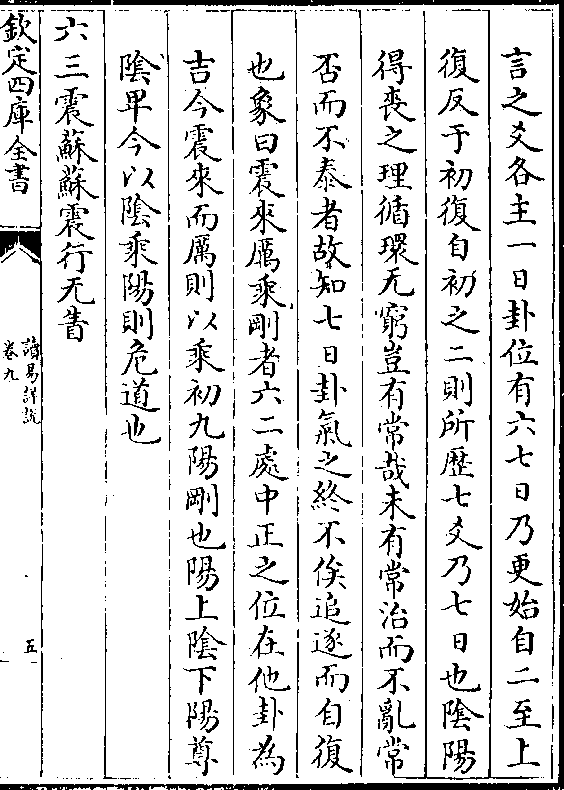 言之爻各主一日卦位有六七日乃更始自二至上
復反于初復自初之二則所歴七爻乃七日也陰陽
得喪之理循環无窮豈有常哉未有常治而不亂常
否而不泰者故知七日卦氣之終不俟追逐而自復
也象曰震來厲乘剛者六二處中正之位在他卦為
吉今震來而厲則以乘初九陽剛也陽上陰下陽尊
陰卑今以陰乘陽則危道也
六三震蘇蘇震行无眚
欽定四庫全書
讀易詳說
卷九
五